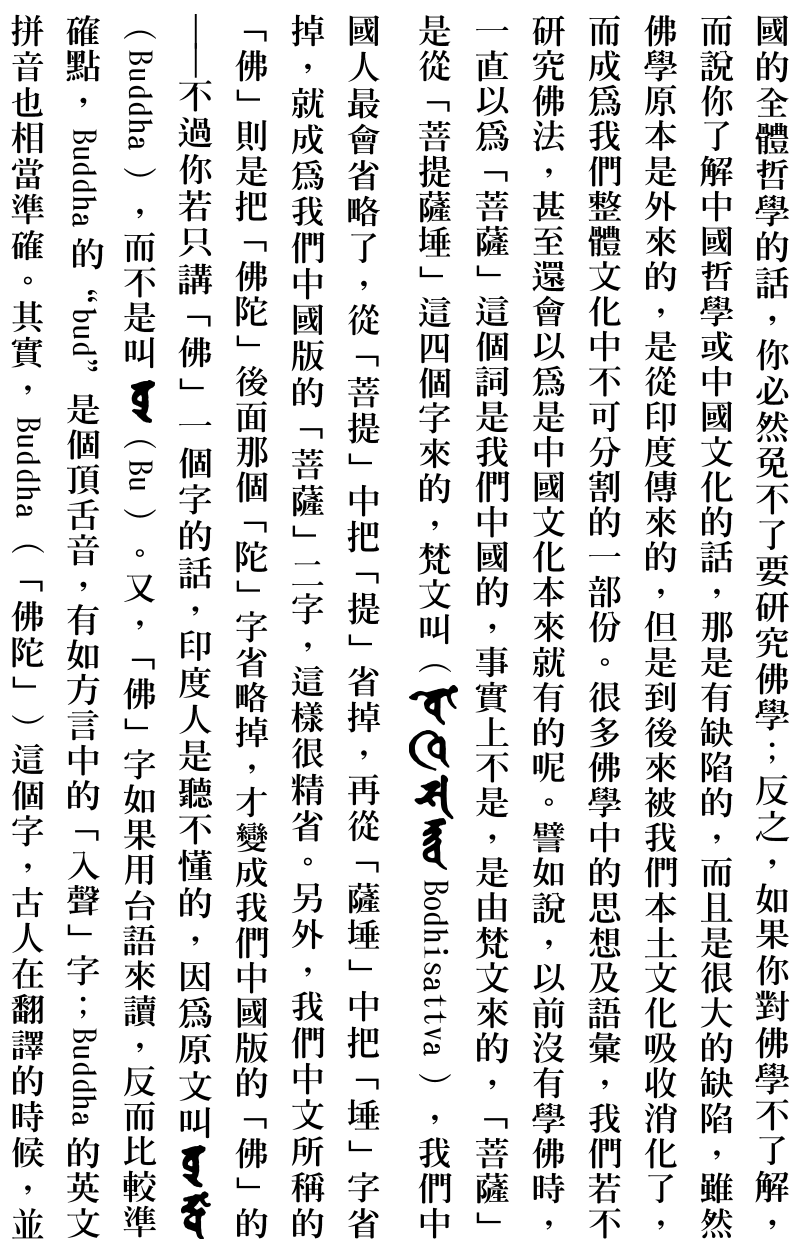 國的全體哲學的話，你必然免不了要研究佛學；反之，如果你對佛學不了解，
而說你了解中國哲學或中國文化的話，那是有缺陷的，而且是很大的缺陷，雖然
佛學原本是外來的，是從印度傳來的，但是到後來被我們本土文化吸收消化了，
而成爲我們整體文化中不可分割的一部份。很多佛學中的思想及語彙，我們若不
研究佛法，甚至還會以爲是中國文化本來就有的呢。譬如說，以前沒有學佛時，
一直以爲「菩薩」這個詞是我們中國的，事實上不是，是由梵文來的，「菩薩」
是從「菩提薩埵」這四個字來的，梵文叫（Bodhisattva），我們中
國人最會省略了，從「菩提」中把「提」省掉，再從「薩埵」中把「埵」字省
掉，就成爲我們中國版的「菩薩」二字，這樣很精省。另外，我們中文所稱的
「佛」則是把「佛陀」後面那個「陀」字省略掉，才變成我們中國版的「佛」的
——不過你若只講「佛」一個字的話，印度人是聽不懂的，因爲原文叫
（Buddha），而不是叫（Bu）。又，「佛」字如果用台語來讀，反而比較準
確點，Buddha的“bud”是個頂舌音，有如方言中的「入聲」字；Buddha的英文
拼音也相當準確。其實，Buddha（「佛陀」）這個字，古人在翻譯的時候，並